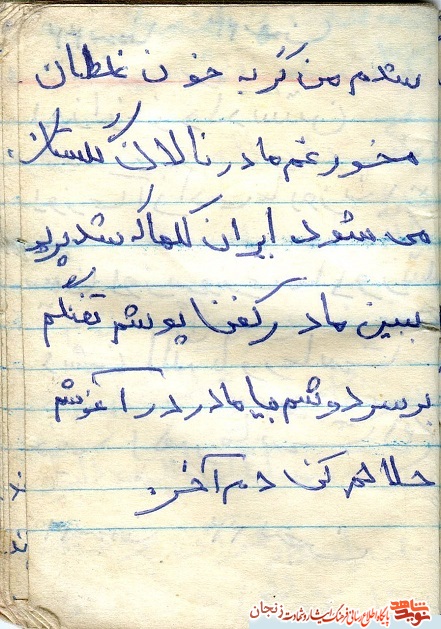 شدم من گر به خون غلطان
مخور غم مادر نالان گلستان
می شود ایران گلها که شد پرپر
ببین مادر کفن پوشم تفنگم
بر سر دوشم بیا مادر در آغوشم
حلالم کن دم آخر.
نوید شاهد
پایگاه اطلاع رسانی فرهنگ ایثار و شهادت زنجان